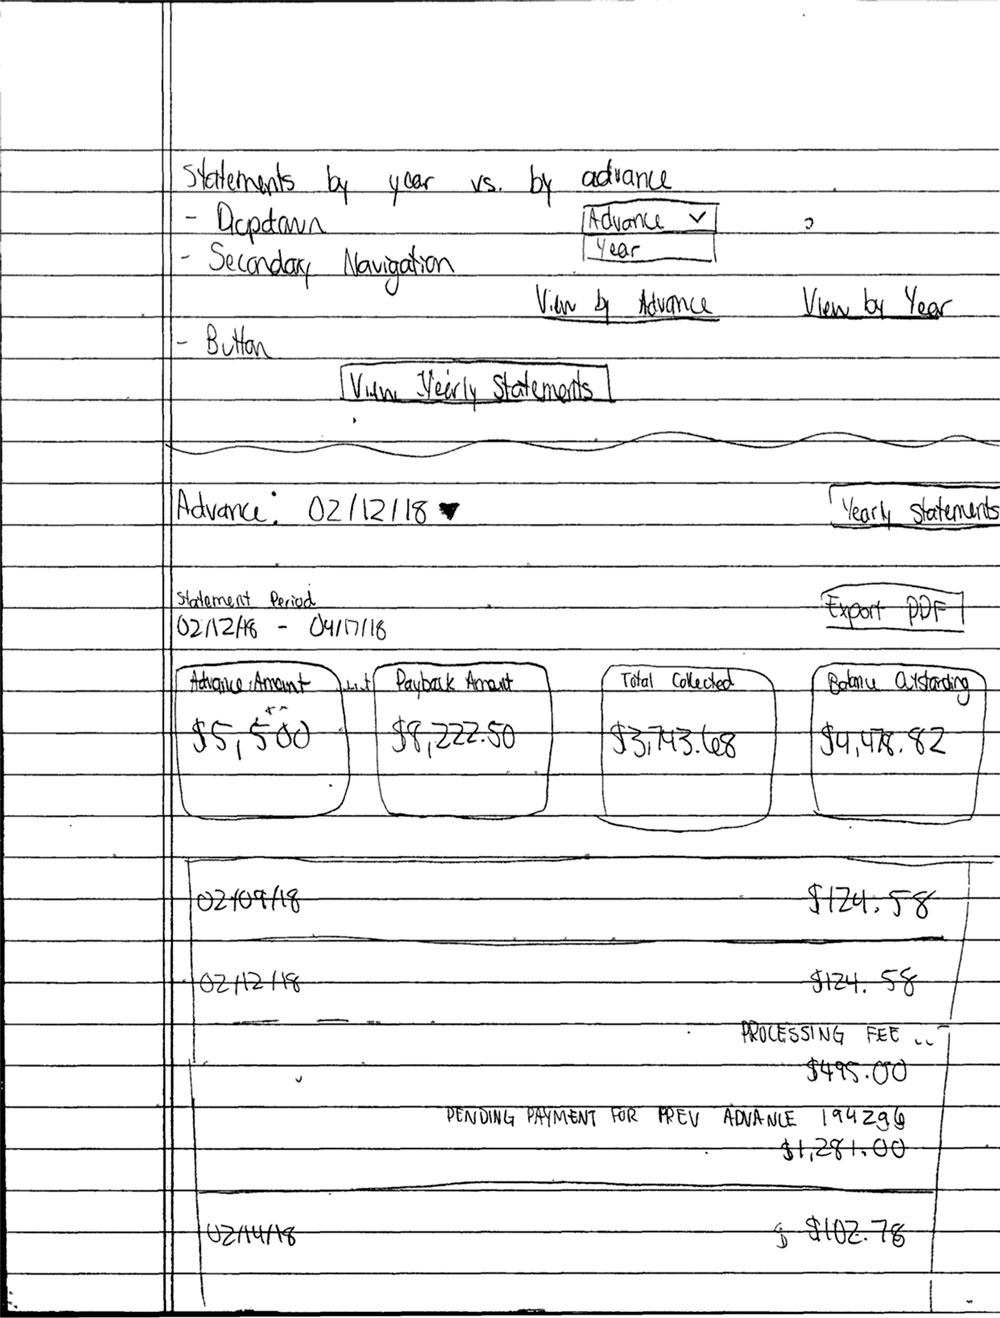 Statements by year vs. by advance
- Dropdown
Advance
Year
- Secondary Navigation
View by Advance View by Year
- Button
View Yearly Statements
Advance: 02/12/18
Yearly Statements
Statement Period
02/12/18 - 04/17/18
Export PDF
Advance Amount Payback Amount Total Collected Balance Outstanding
$5,500 $8,222.50 $3,743.68 $4,478.82
02/09/18 $124.58
02/12/18 $124.58
PROCESSING FEE
$495.00
PENDING PAYMENT FOR PREV ADVANCE 194296
$1,281.00
02/14/18 $102.78